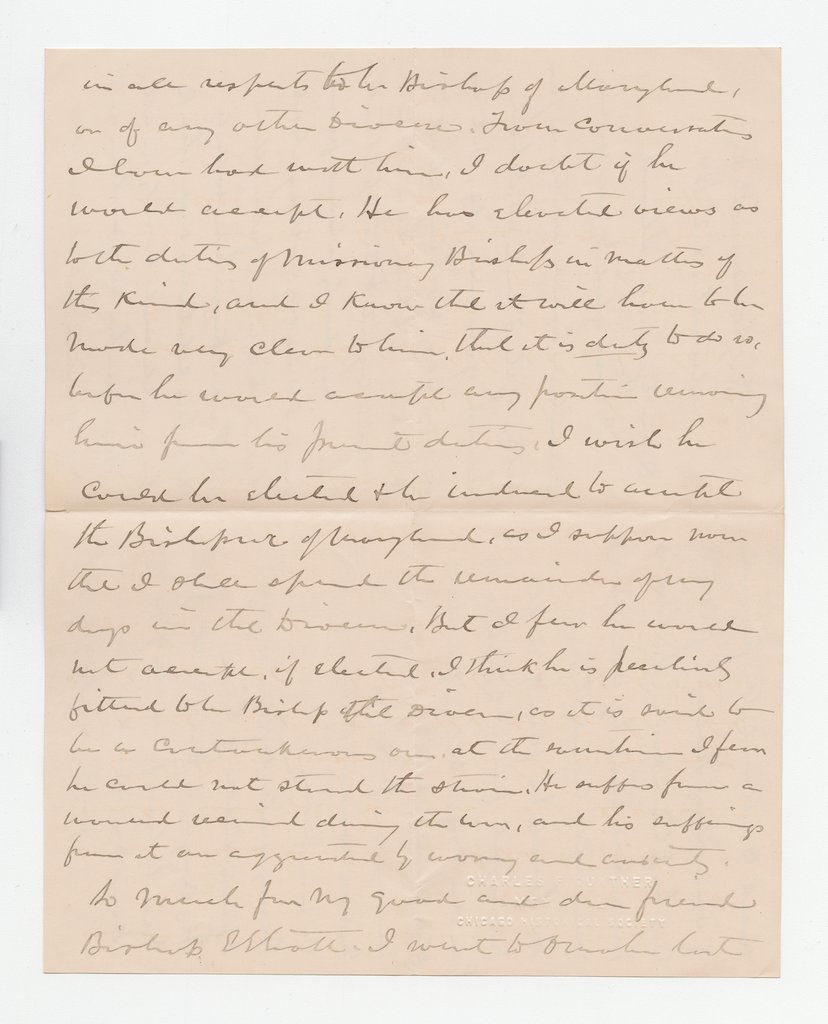 in all respects to be Bishop of Maryland,
or of any other Diocese. From conversations
I have had with him, I doubt if he
would accept. He has elevated views as
to the duties of Missionary Bishops in matters of
this kind, and I know that it will have to be
made very clear to him, that it is duty to do so,
before he would accept any position removing
him from his present duties. I wish he
could be elected & be induced to accept
the Bishopric of Maryland, as I suppose now
that I shall spend the remainder of my
days in the Diocese. But I fear he would
not accept, if elected. I think he is peculiarly
fitted to be Bishop of that Diocese, as it is said to
be a cantankerous one, at the same time I fear
he could not stand the strain. He suffers from a
wound received during the war, and his sufferings
from it are aggravated by worry and anxiety.
So much for my good and dear friend
Bishop Elliott. I went to Omaha last
CHARLES F. GUNTHER
CHICAGO HISTORICAL SOCIETY